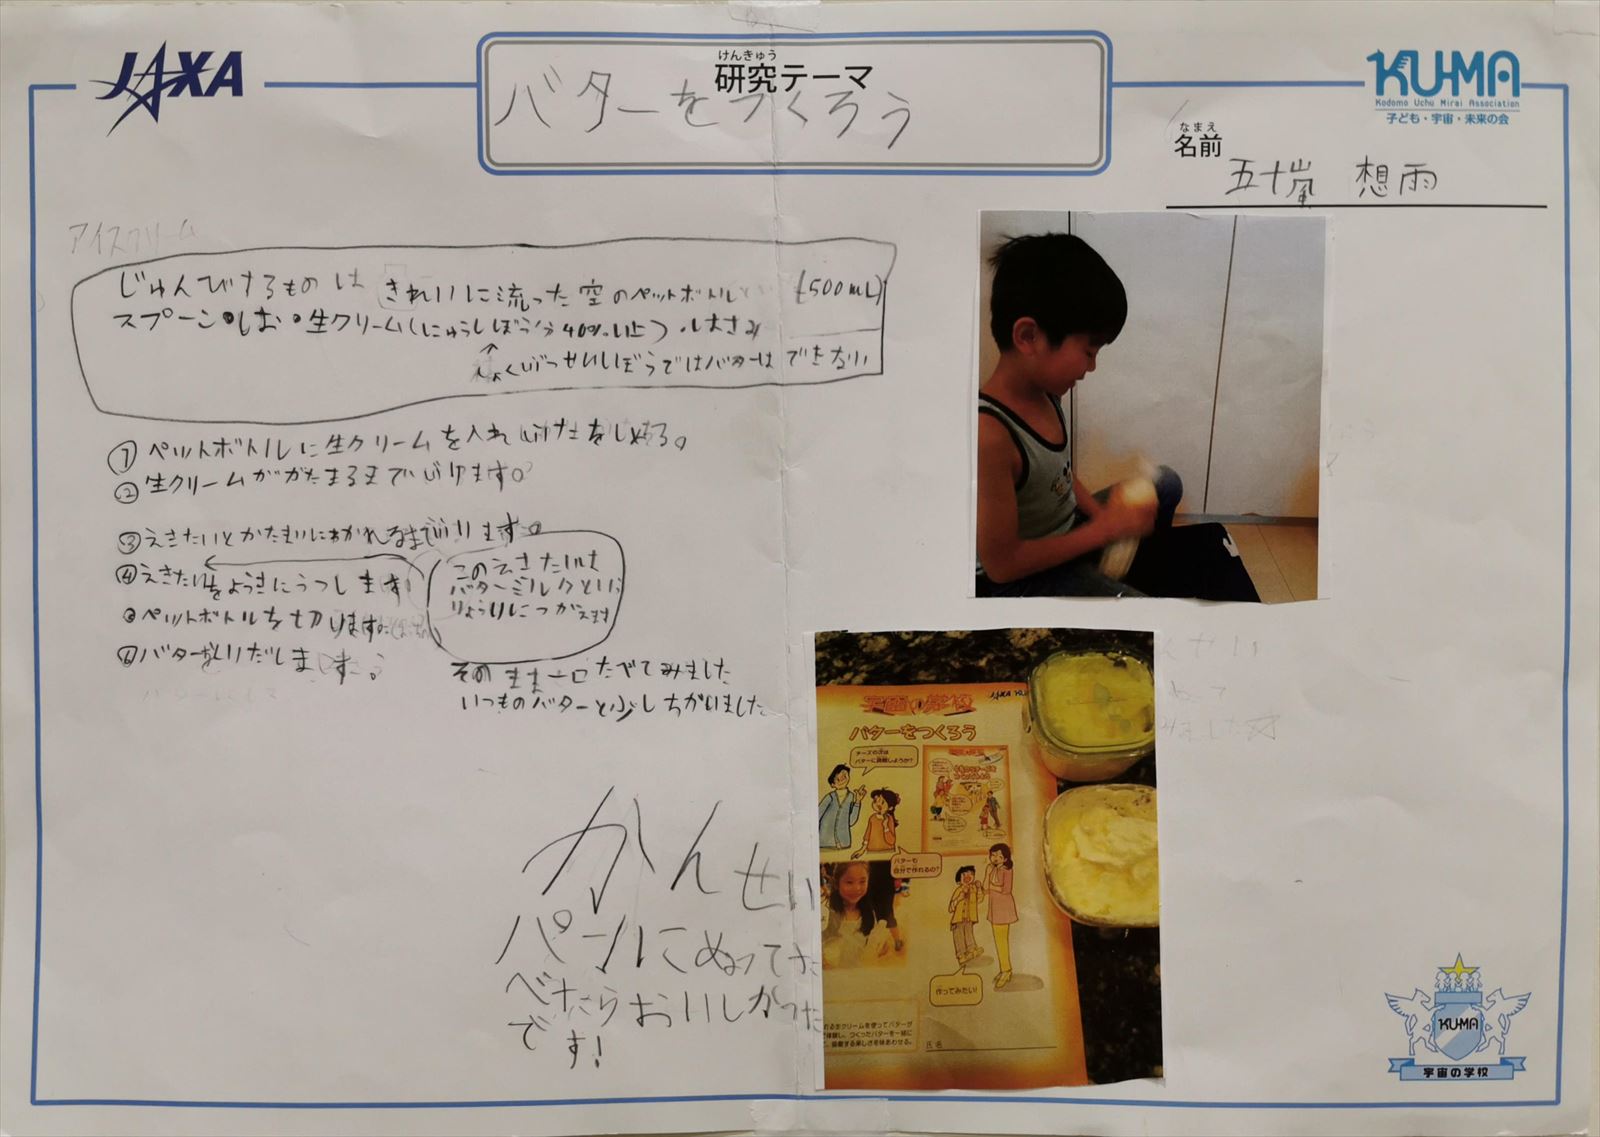 JAXA
けんきゅう
研究テーマ
バターをつくろう
KU-MA
Kodomo Uchu Mirai Association
子ども・宇宙・未来の会
なまえ
名前
五十嵐 想雨
アイスクリーム
じゅんびするものは きれいに流った空のペットボトル (500mL)
スプーン・しお・生クリーム(にゅうしぼう分40%以上)・はさみ
しょくぶっせいしぼうではバターはできない
① ペットボトルに生クリームを入れふたをしめる。
② 生クリームがかたまるまでふります。
③ えきたいとかたまりにわかれるまでふります。
④ えきたいをようきにうつします
このえきたいは
バターミルクといい
りょうりにつかえます
ペットボトルを切ります。
⑥ バターをとりだします。
そのまま一口たべてみました
いつものバターと少しちがいました
かんせい
パンにぬってた
べたらおいしかった
です!
宇宙の学校
JAXA KU
バターをつくろう
チーズの次は
バターに挑戦しようか?
バターも
自分で作れるの?
作ってみたい!
る生クリームを使ってバターが
体験し、つくったバターを一緒に
氏名
KU-MA
宇宙の学校